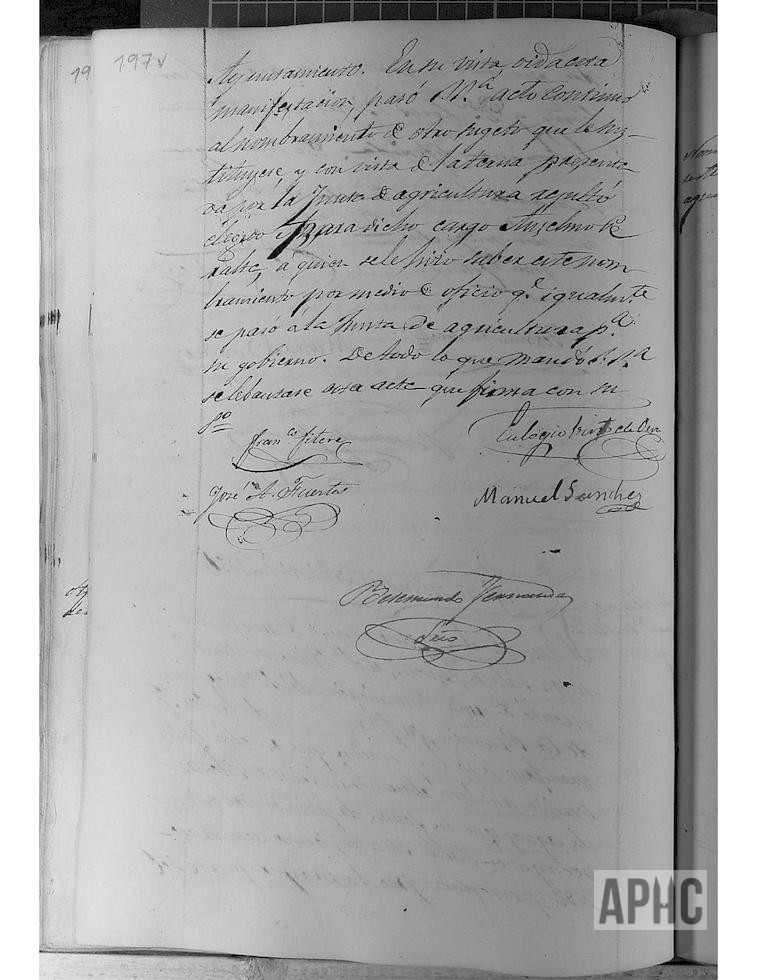 197v
Ayuntamiento. En su vista oida esta
manifestacion, pasó S. Sª acto continuo
al nombramiento de otro sugeto que le sus-
tituyese, y con vista de la terna presenta
da por la Junta de agricultura resultó
elegido para dicho cargo Anselmo Pe
ralta, á quien se le hizo saber este nom
bramiento por medio de oficio qe. igualmte
se pasó á la Junta de agricultura pª.
su gobierno. De todo lo que mandó S. Sª
se lebantase esta acta que firma con su
Franco. Fitera
Eulogio
José A. Fuertes
Manuel Sanchez
Beremundo Fernandez
Srio
APHC